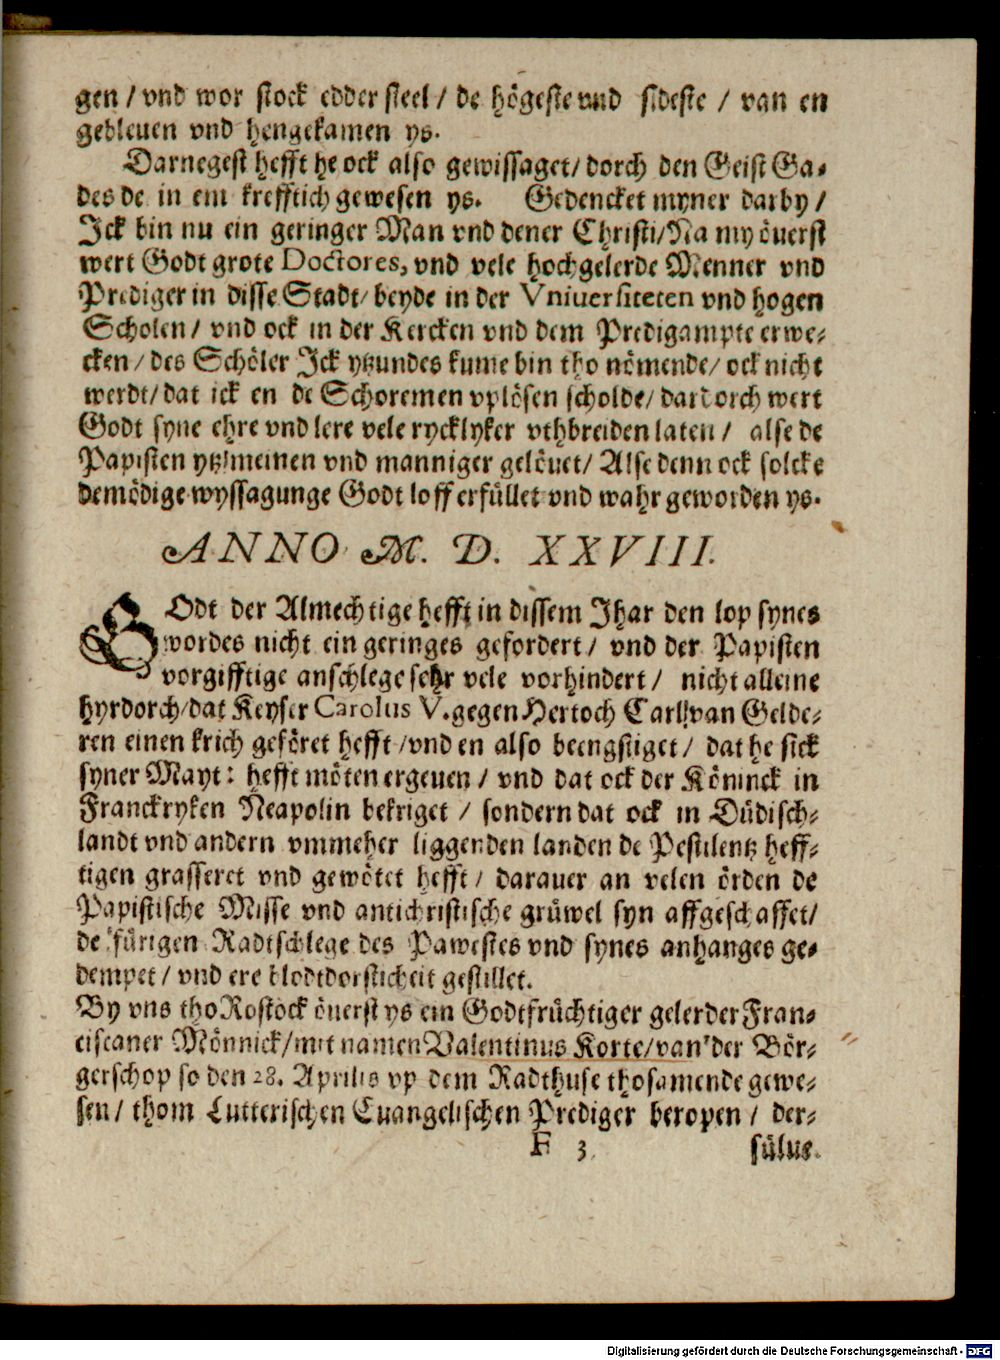 gen / vnd wor stock edder steel / de högeste vnd sideste / van en
gebleuen vnd hengekamen ys.
Darnegest hefft he ock also gewissaget / dorch den Geist Ga-
des de in em krefftich gewesen ys. Gedencket myner darby /
Jck bin nu ein geringer Man vnd dener Christi / Na my öuerst
wert Godt grote Doctores, vnd vele hochgelerde Menner vnd
Prediger in disse Stadt / beyde in der Vniuersiteten vnd hogen
Scholen / vnd ock in der Kercken vnd dem Predigampte erwe-
cken / des Schöler Jck ytzundes kume bin tho nömende / ock nicht
werdt / dat ick en de Schoremen vplösen scholde / dardorch wert
Godt syne ehre vnd lere vele rycklyker vthbreiden laten / alse de
Papisten ytzt meinen vnd manniger gelöuet / Alse denn ock solcke
demödige wyssagunge Godt loff erfüllet vnd wahr geworden ys.
ANNO M. D. XXVIII.
GOdt der Almechtige hefft in dissem Jhar den lop synes
wordes nicht ein geringes gefordert / vnd der Papisten
vorgifftige anschlege sehr vele vorhindert / nicht alleine
hyrdorch / dat Keyser Carolus V. gegen Hertoch Carll van Gelde-
ren einen krich geföret hefft / vnd en also beengstiget / dat he sick
syner Mayt: hefft möten ergeuen / vnd dat ock der Köninck in
Franckryken Neapolin bekriget / sondern dat ock in Düdisch-
landt vnd andern vmmeher liggenden landen de Pestilentz heff-
tigen grasseret vnd gewötet hefft / darauer an velen örden de
Papistische Misse vnd antichristische grüwel syn affgeschaffet /
de fürigen Radtschlege des Pawestes vnd synes anhanges ge-
dempet / vnd ere blodtdorsticheit gestillet.
By vns tho Rostock öuerst ys ein Godtfrüchtiger gelerder Fran-
ciscaner Mönnick / mit namen Valentinus Korte / van der Bör-
gerschop so den 28. Aprilis vp dem Radthuse thosamende gewe-
sen / thom Lutterischen Euangelischen Prediger beropen / der-
F 3 sülue
Digitalisierung gefördert durch die Deutsche Forschungsgemeinschaft - DFG